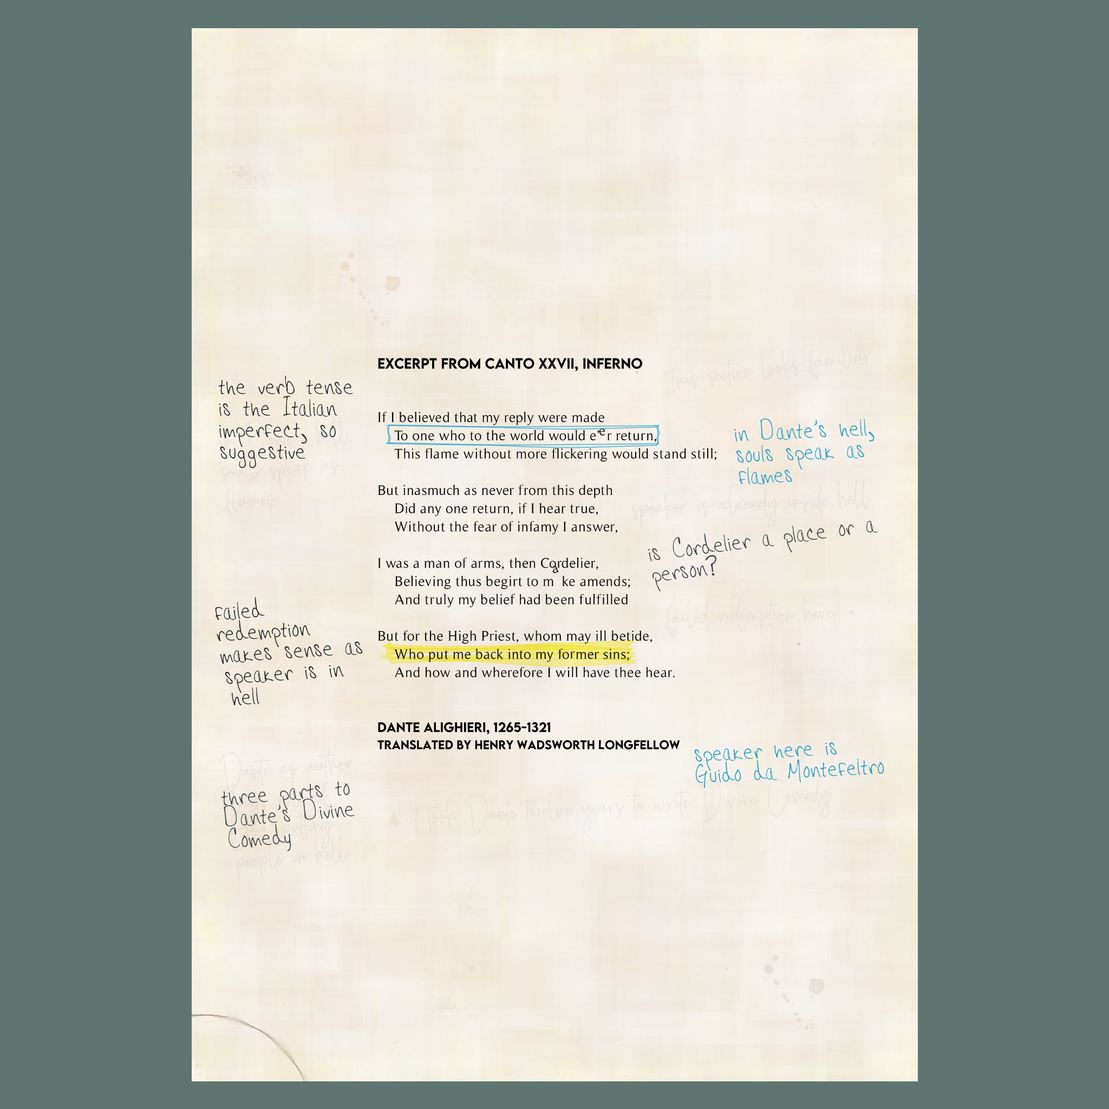 EXCERPT FROM CANTO XXVII, INFERNO
this section looks familiar
the verb tense
is the Italian
imperfect, so
suggestive
souls speak as
flames
If I believed that my reply were made
To one who to the world would e'er return,
This flame without more flickering would stand still;
in Dante's hell,
souls speak as
flames
But inasmuch as never from this depth
Did any one return, if I hear true,
Without the fear of infamy I answer,
speaker is already inside hell
is Cordelier a place or a
person?
I was a man of arms, then Cordelier,
Believing thus begirt to make amends;
And truly my belief had been fulfilled
failed redemption here
failed
redemption
makes sense as
speaker is in
hell
But for the High Priest, whom may ill betide,
Who put me back into my former sins;
And how and wherefore I will have thee hear.
DANTE ALIGHIERI, 1265-1321
TRANSLATED BY HENRY WADSWORTH LONGFELLOW
speaker here is
Guido da Montefeltro
Dante as author
three parts to
Dante's Divine
Comedy
people in hell
it took Dante twelve years to write Divine Comedy